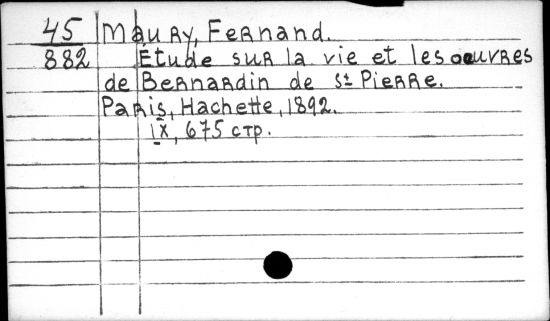 45 Maury, Fernand.
882 Étude sur la vie et les oeuvres
de Bernardin de St Pierre.
Paris, Hachette, 1892.
IX, 675 стр.